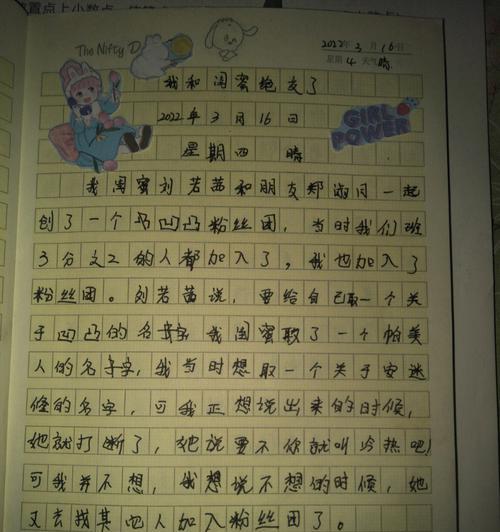 The Nifty D
2022年3月16日
星期4 天气晴
我和闺蜜绝交了
2022年3月16日
星期四 晴
GIRL POWER
我闺蜜刘若茜和朋友郑淑月一起
创了一个马凹凸粉丝团，当时我们班
3分之2的人都加入了，我也加入了
粉丝团。刘若茜说，要给自己取一个关
于凹凸的名字，我闺蜜取了一个帕美
人的名字，我当时想取一个关于安迷
修的名字，可我正想说出来的时候，
她就打断了，她说要不你就叫冷热吧！
可我并不想，我想说不想的时候，她
又去找其他人加入粉丝团了。